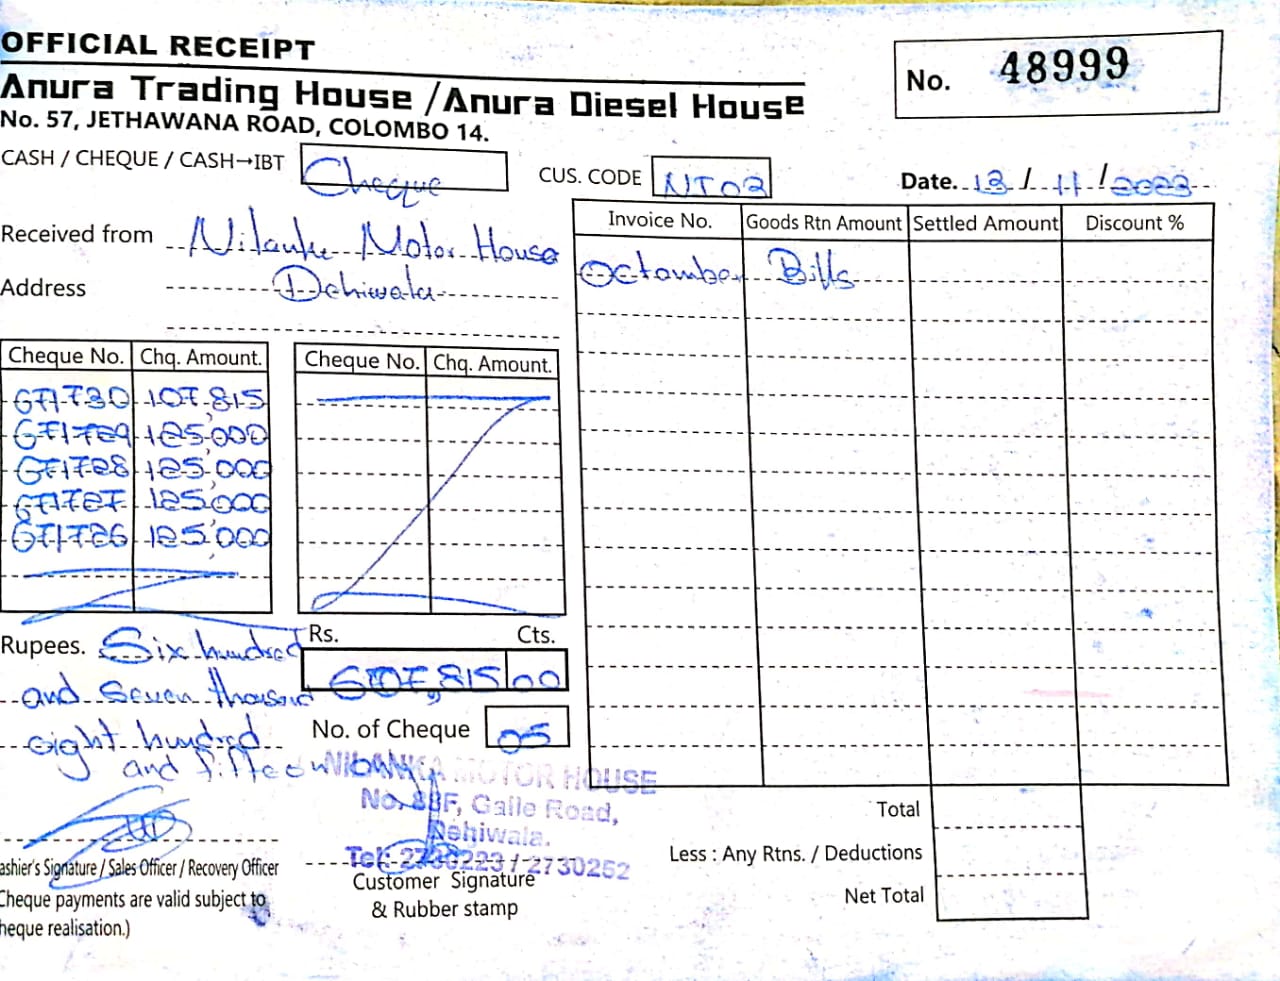 OFFICIAL RECEIPT
No. 48999
Anura Trading House / Anura Diesel House
No. 57, JETHAWANA ROAD, COLOMBO 14.
CASH / CHEQUE / CASH→IBT Cheque
CUS. CODE NT03
Date. 13 / 11 / 2023
Received from Nilanka Motor House
Address Dehiwala
Invoice No. Goods Rtn Amount Settled Amount Discount %
Octomber Bills
Cheque No. Chq. Amount. Cheque No. Chq. Amount.
671730 107,815
671729 125,000
671728 125,000
671727 125,000
671726 125,000
Rupees. Six hundred
and seven thousand
eight hundred
and fifteen only
Rs. Cts.
607,815 00
No. of Cheque 05
NILANKA MOTOR HOUSE
No. 88F, Galle Road,
Dehiwala.
Tel: 2730223 / 2730252
Customer Signature
& Rubber stamp
ashier's Signature / Sales Officer / Recovery Officer
Cheque payments are valid subject to
heque realisation.)
Total
Less : Any Rtns. / Deductions
Net Total